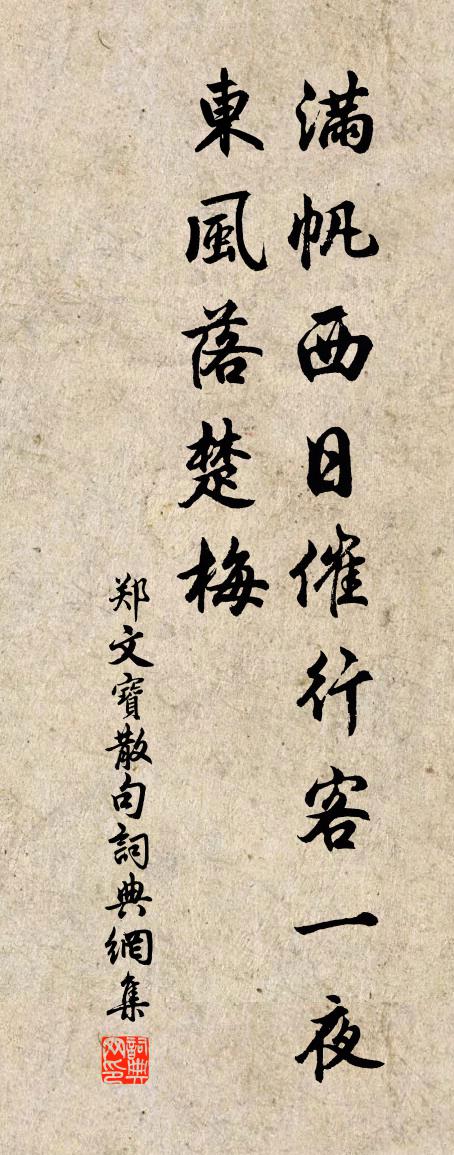 滿帆西日催行客一夜
東風落楚梅
郑文寶散句詞典網集
詞典网印